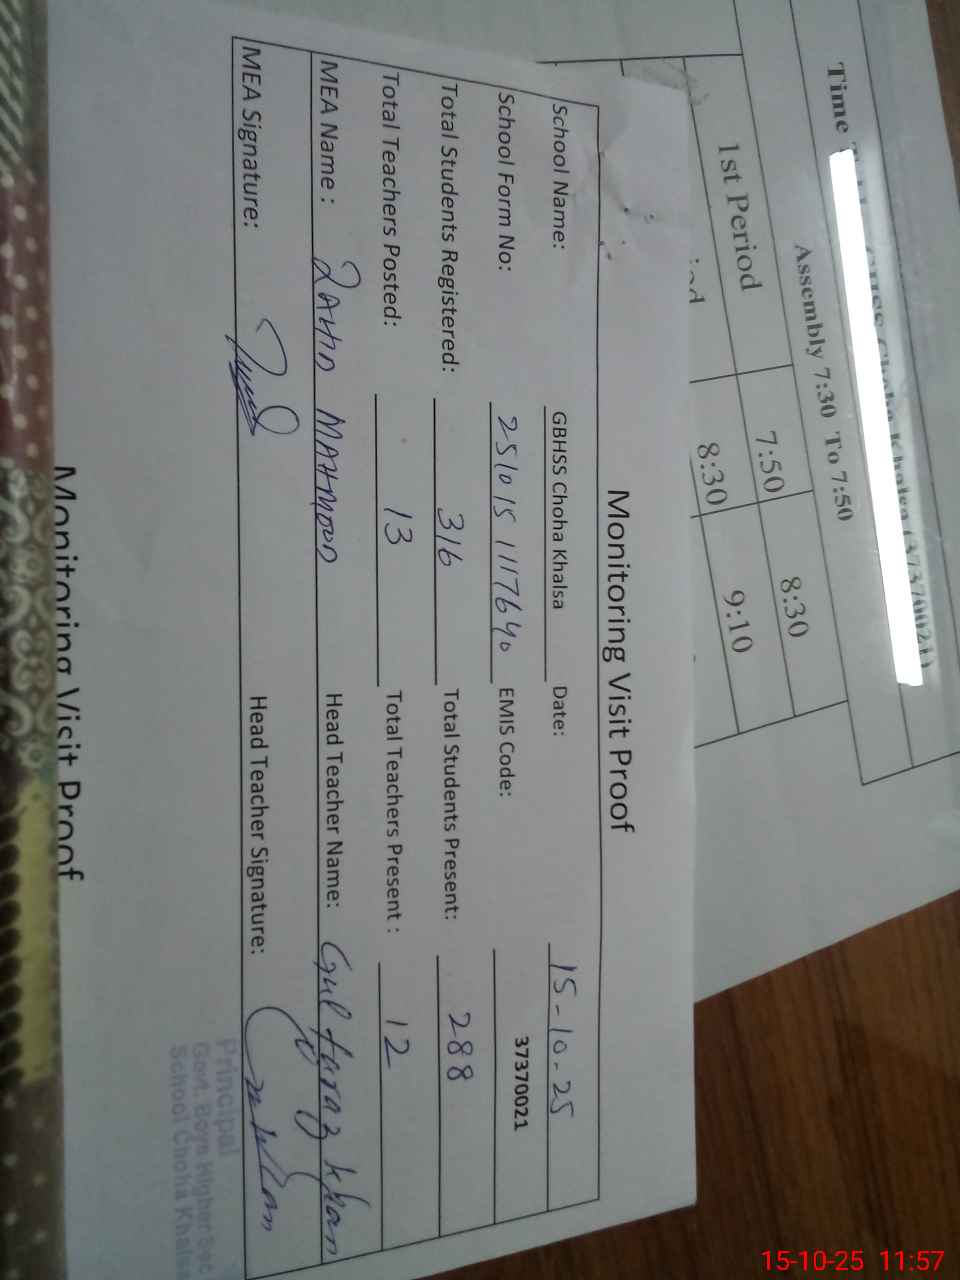 Monitoring Visit Proof
School Name: GBHSS Choha Khalsa Date: 15-10-25
School Form No: 251015 1117640 EMIS Code: 37370021
Total Students Registered: 316 Total Students Present: 288
Total Teachers Posted: 13 Total Teachers Present : 12
MEA Name : ZAHID MAHMOOD Head Teacher Name: Gul faraz khan
MEA Signature: Head Teacher Signature:
Principal
Govt. Boys Higher Sec
School Choha Khalsa
Monitoring Visit Proof
Time
Choha Khalsa (37370021)
Assembly 7:30 To 7:50
1st Period 7:50 8:30
8:30 9:10
15-10-25 11:57